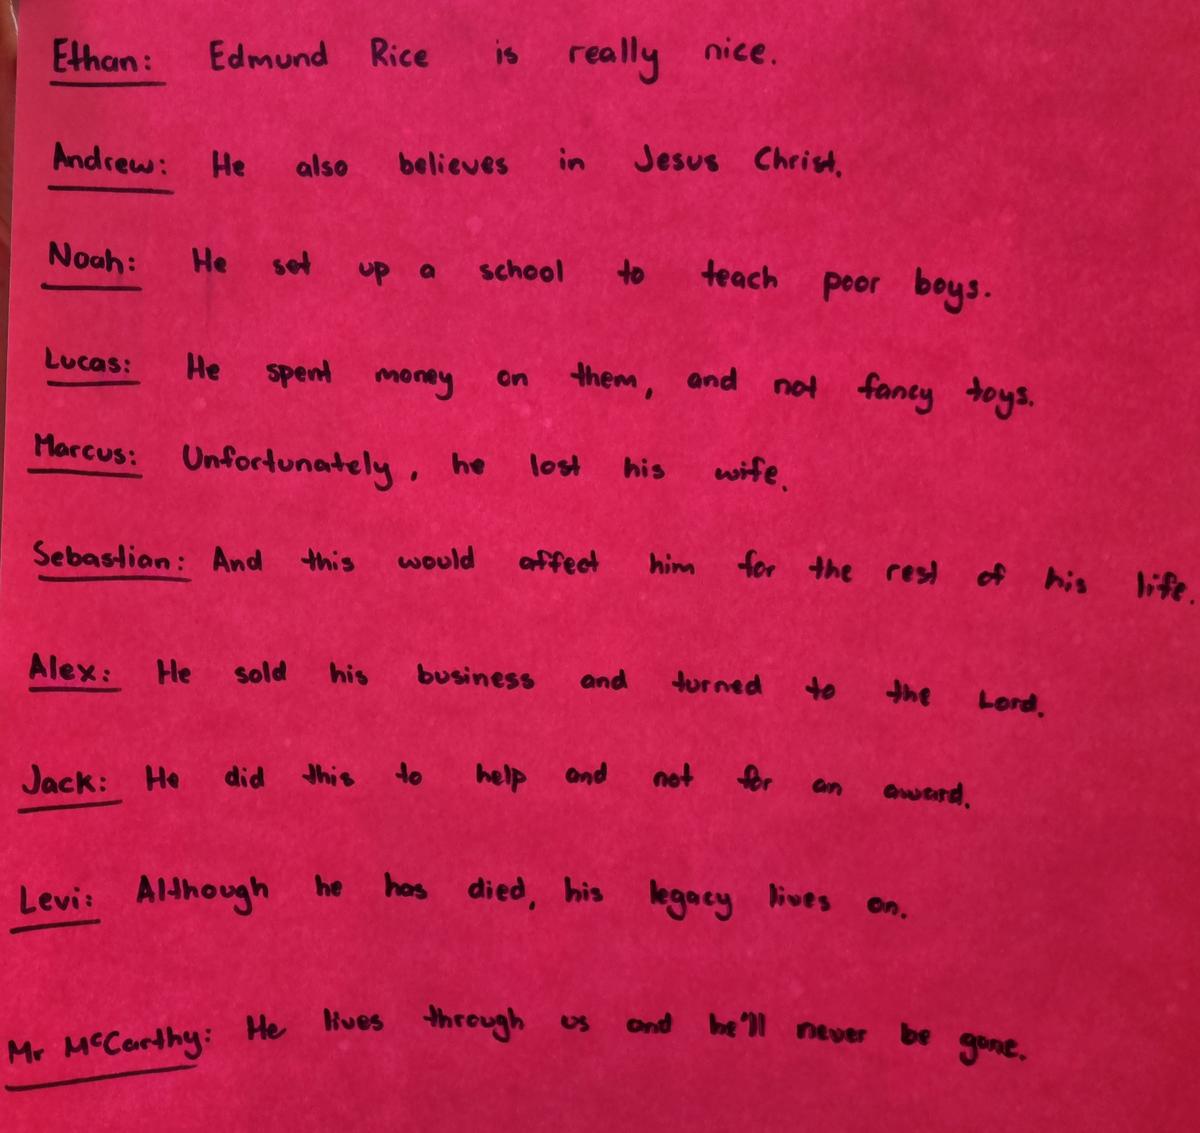 Ethan: Edmund Rice is really nice.
Andrew: He also believes in Jesus Christ.
Noah: He set up a school to teach poor boys.
Lucas: He spent money on them, and not fancy toys.
Marcus: Unfortunately, he lost his wife.
Sebastian: And this would affect him for the rest of his life.
Alex: He sold his business and turned to the Lord.
Jack: He did this to help and not for an award.
Levi: Although he has died, his legacy lives on.
Mr McCarthy: He lives through us and he'll never be gone.